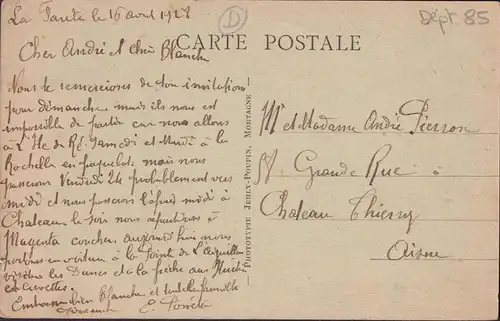 La le 16 août 1928
D
Dépt 85
CARTE POSTALE
Cher André et chère Blanche
Nous te remercions de ton invitation
pour démanche mais ils nous est
impossible de car nous allons
à L'Ile de Ré Samedi et à la
Rochelle en paquebot mais nous
Vendredi 24 probablement vers
midi et nous l'après midi à
Chateau le soir nous repartirons à
Magenta coucher aujourd'hui nous
partons en voiture à la Pointe de L'Aiguillon
les Dunes et à la pêche aux
et crevettes.
bien Blanche et toute la famille
E.
PHOTOTYPE JEHLY-POUPIN, MORTAGNE
Mr et Madame André Pierson
Grande Rue à
Chateau Thierry
Aisne